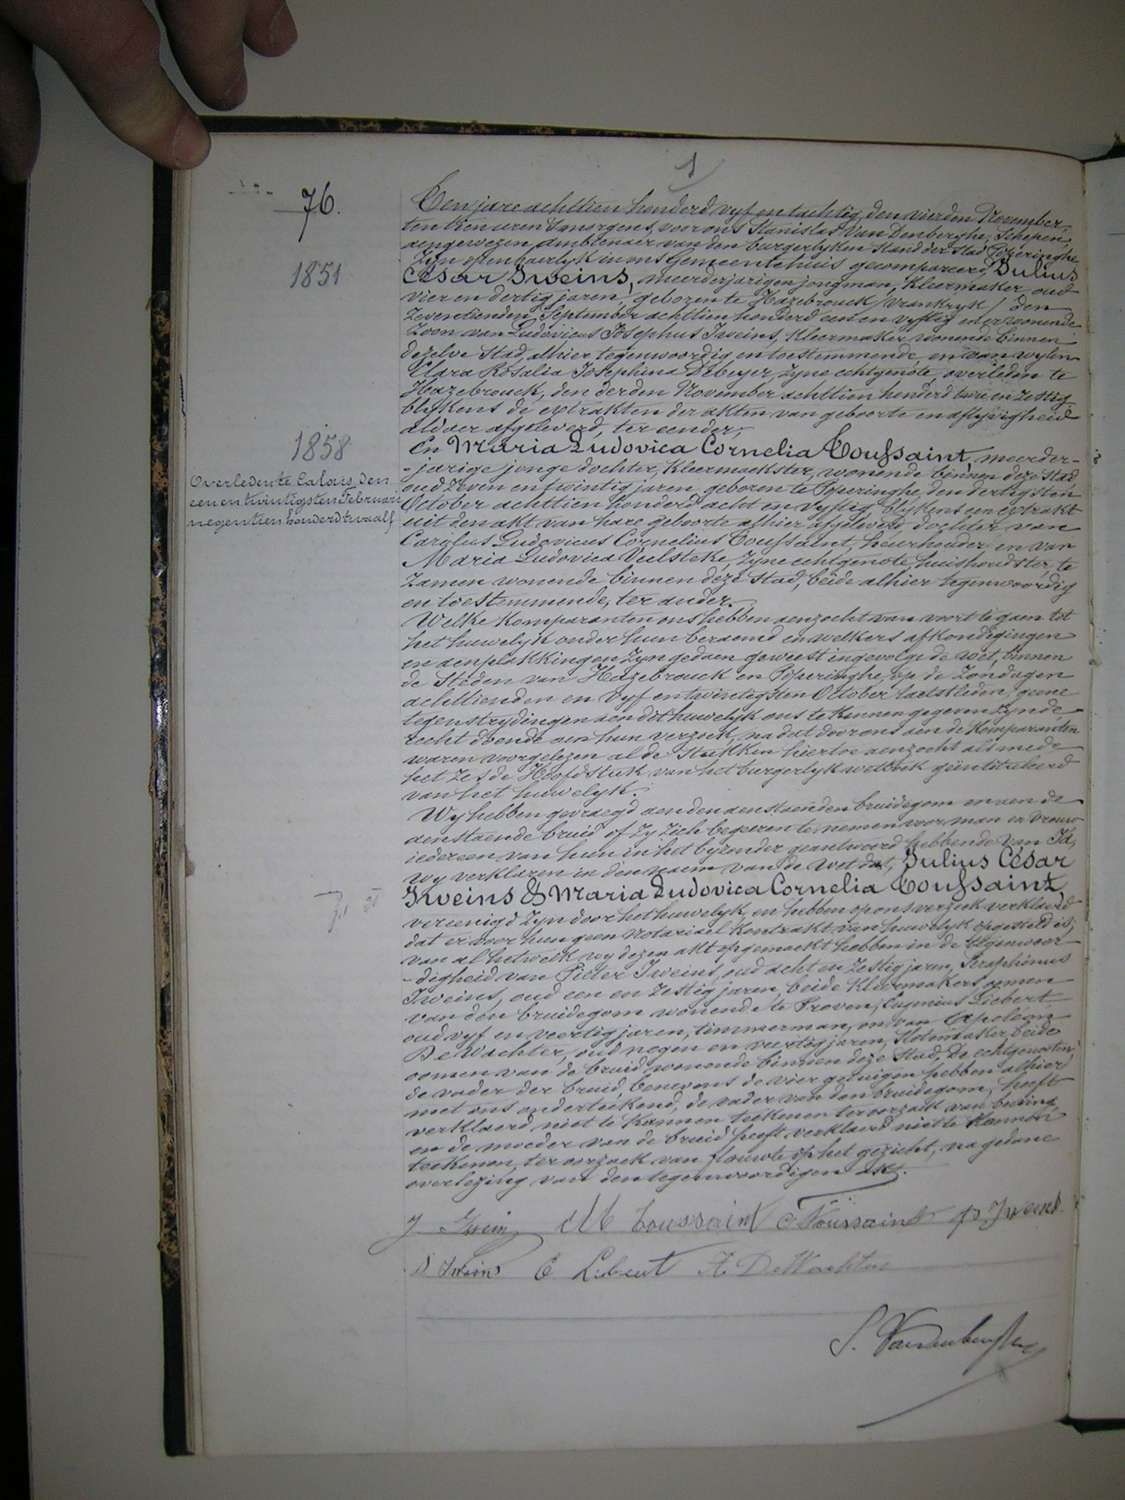 1
76.
1851
1858
Overleden te Calais, den
een en twintigsten Februari
negentien honderd twaalf
Ten jare achttien honderd vyf en tachtig, den vierden November,
ten tien uren smorgens, voor ons Stanislas Van Denberghe, Schepen,
aengewezen Ambtenaer van den burgerlyken stand der stad Poperinghe,
zyn openbaerlyk in ons Gemeentehuis gecompareerd, Julius
César Iweins, meerderjarigen jongman, Kleermaker, oud
vier en dertig jaren, geboren te Hazebrouck (vrankryk) den
zeventienden September achttien honderd een en vyftig en er wonende
Zoon van Ludovicus Josephus Iweins, Kleermaker, wonende binnen
dezelve Stad, alhier tegenwoordig en toestemmende, en van wylen
Clara Rosalia Josephina Debeyer, zyne echtgenote, overleden te
Hazebrouck, den derden November achttien honderd twee en zestig,
blykens de extrakten der akten van geboorte en aflyvigheid
aldaer afgeleverd, ter eender;
En Maria Ludovica Cornelia Toussaint, meerder-
-jarige jonge dochter, Kleermaekster, wonende binnen deze Stad,
oud zeven en twintig jaren, geboren te Poperinghe, den dertigsten
October achttien honderd acht en vyftig, blykens een extrakt
uit den akt van hare geboorte alhier afgeleverd, dochter van
Carolus Ludovicus Cornelius Toussaint, huurhouder, en van
Maria Ludovica Veelsteke, zyne echtgenote, huishoudster, te
zamen wonende binnen deze Stad, beide alhier tegenwoordig
en toestemmende, ter ander.
Welke Komparanten ons hebben aenzocht van voort te gaen tot
het huwelyk onder hun beraemd en welkers afkondigingen
en aenplakkingen zyn gedaen geweest ingevolge de wet, binnen
de Steden van Hazebrouck en Poperinghe, op de Zondagen
achttienden en vyf en twintigsten October laatstleden, geene
tegenstrydingen aen dit huwelyk ons te Kennen gegeven zynde,
recht doende aen hun verzoek, na dat door ons aen de Komparanten
waren voorgelezen al de Stukken hiertoe aenzocht alsmede
het zesde Hoofdstuk van het burgerlyk wetboek geïntituleerd
van het huwelyk.
Wy hebben gevraegd aen den aenstaenden bruidegom en aen de
aenstaende bruid of zy zich begeren te nemen voor man en vrouw
iedereen van hun in het byzonder geantwoord hebbende van Ja,
wy verklaren in den naem van de Wet dat, Julius César
Iweins & Maria Ludovica Cornelia Toussaint,
vereenigd zyn door het huwelyk, en hebben op ons verzoek verklaerd
dat er voor hun geen Notariael Kontrakt van huwelyk opgesteld is,
van al hetwelk wy dezen akt opgemaekt hebben in de tegenwoor-
-digheid van Pieter Iweins, oud acht en zestig jaren, Seraphinus
Iweins, oud een en zestig jaren, beide Kleermakers oomen
van den bruidegom wonende te Proven, Eugenius Liebert,
oud vyf en veertig jaren, timmerman, en van Apoleon
De Wachter, oud negen en veertig jaren, Slotemaker, beide
oomen van de bruid wonende binnen deze Stad, De echtgenoten,
de vader der bruid, benevens de vier getuigen hebben alhier
met ons onderteekend, de vader van den bruidegom heeft
verklaerd niet te Kunnen teekenen ter oorzaek van beving,
en de moeder van de bruid heeft verklaerd niet te Kunnen
teekenen, ter oorzaek van flauwte op het gezicht, na gedane
overlezing van den tegenwoordigen akt.
J Iwein M L Toussaint C Toussaint P Iweins
S Iweins E Liebert A DeWachter
S. Vandenberghe